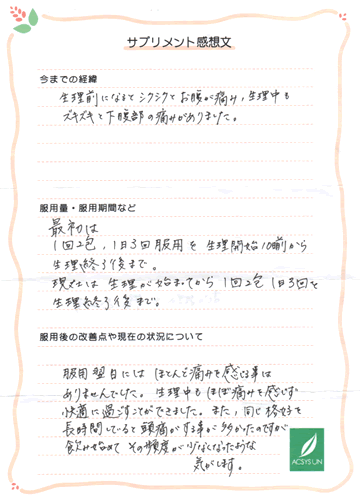 サプリメント感想文
今までの経緯
生理前になるとシクシクとお腹が痛み、生理中も
ズキズキと下腹部の痛みがありました。
服用量・服用期間など
最初は
1回2包、1日3回服用を生理開始10日前から
生理終了後まで。
現在は生理が始まってから1回2包1日3回を
生理終了後まで。
服用後の改善点や現在の状況について
服用翌日にはほとんど痛みを感じる事は
ありませんでした。生理中もほぼ痛みを感じず
快適に過ごすことができました。また、同じ格好を
長時間していると頭痛がする事が多かったのですが
飲み始めてその頻度が少なくなったような
気がします。
ACSYS UN